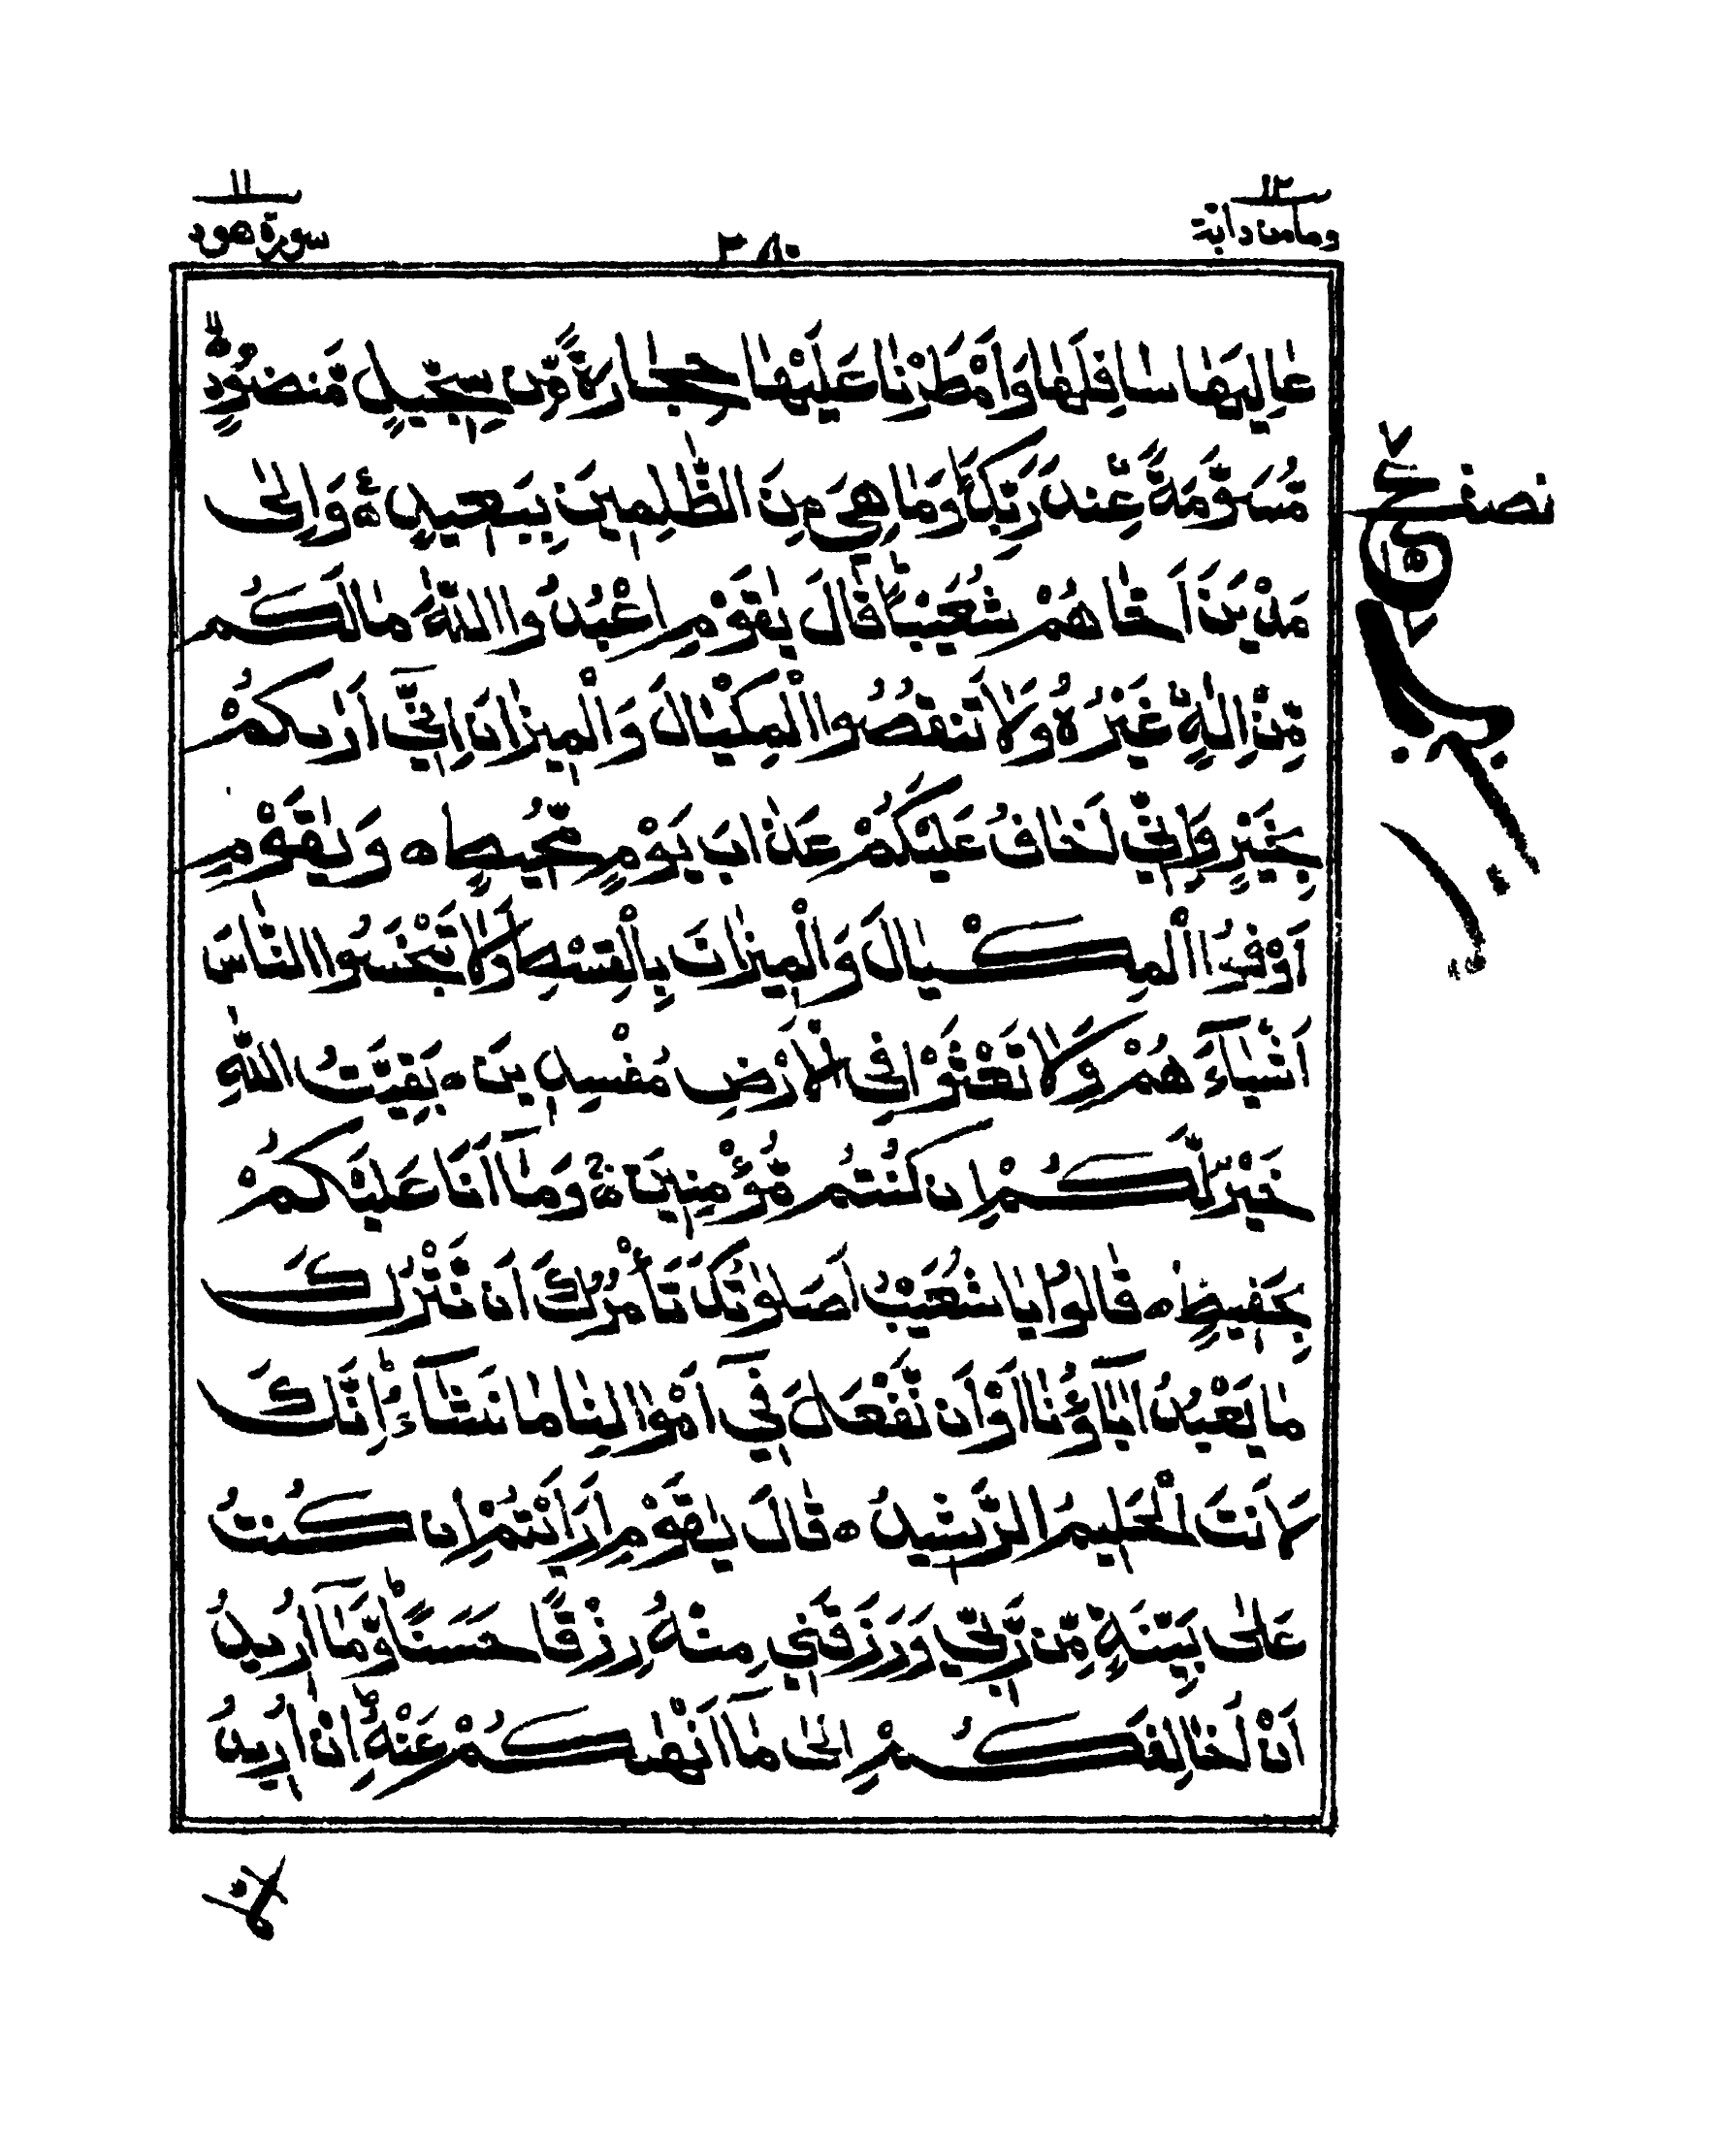 ١٢
وما من دابة
٣٨٠
١١
سورة هود
عَالِيَهَا سَافِلَهَا وَاَمْطَرْنَا عَلَيْهَا حِجَارَةً مِّن سِجِّيلٍ مَّنضُودٍ
مُّسَوَّمَةً عِندَ رَبِّكَ وَمَا هِيَ مِنَ الظّٰلِمِينَ بِبَعِيدٍ ۝ وَاِلٰى
مَدْيَنَ اَخَاهُمْ شُعَيْبًا قَالَ يٰقَوْمِ اعْبُدُوا اللّٰهَ مَا لَكُم
مِّنْ اِلٰهٍ غَيْرُهُ وَلَا تَنقُصُوا الْمِكْيَالَ وَالْمِيزَانَ اِنِّيٓ اَرٰىكُمْ
بِخَيْرٍ وَاِنِّي اَخَافُ عَلَيْكُمْ عَذَابَ يَوْمٍ مُّحِيطٍ ۝ وَيٰقَوْمِ
اَوْفُوا الْمِكْيَالَ وَالْمِيزَانَ بِالْقِسْطِ وَلَا تَبْخَسُوا النَّاسَ
اَشْيَآءَهُمْ وَلَا تَعْثَوْا فِي الْاَرْضِ مُفْسِدِينَ ۝ بَقِيَّتُ اللّٰهِ
خَيْرٌ لَّكُمْ اِن كُنتُم مُّؤْمِنِينَ ۝ وَمَآ اَنَا عَلَيْكُمْ
بِحَفِيظٍ ۝ قَالُوا يَا شُعَيْبُ اَصَلٰوتُكَ تَأْمُرُكَ اَن نَّتْرُكَ
مَا يَعْبُدُ اٰبَآؤُنَا اَوْ اَن نَّفْعَلَ فِيٓ اَمْوَالِنَا مَا نَشَآءُ اِنَّكَ
لَاَنتَ الْحَلِيمُ الرَّشِيدُ ۝ قَالَ يٰقَوْمِ اَرَاَيْتُمْ اِن كُنتُ
عَلٰى بَيِّنَةٍ مِّن رَّبِّي وَرَزَقَنِي مِنْهُ رِزْقًا حَسَنًا وَّمَآ اُرِيدُ
اَنْ اُخَالِفَكُمْ اِلٰى مَآ اَنْهٰىكُمْ عَنْهُ اِنْ اُرِيدُ
نصف